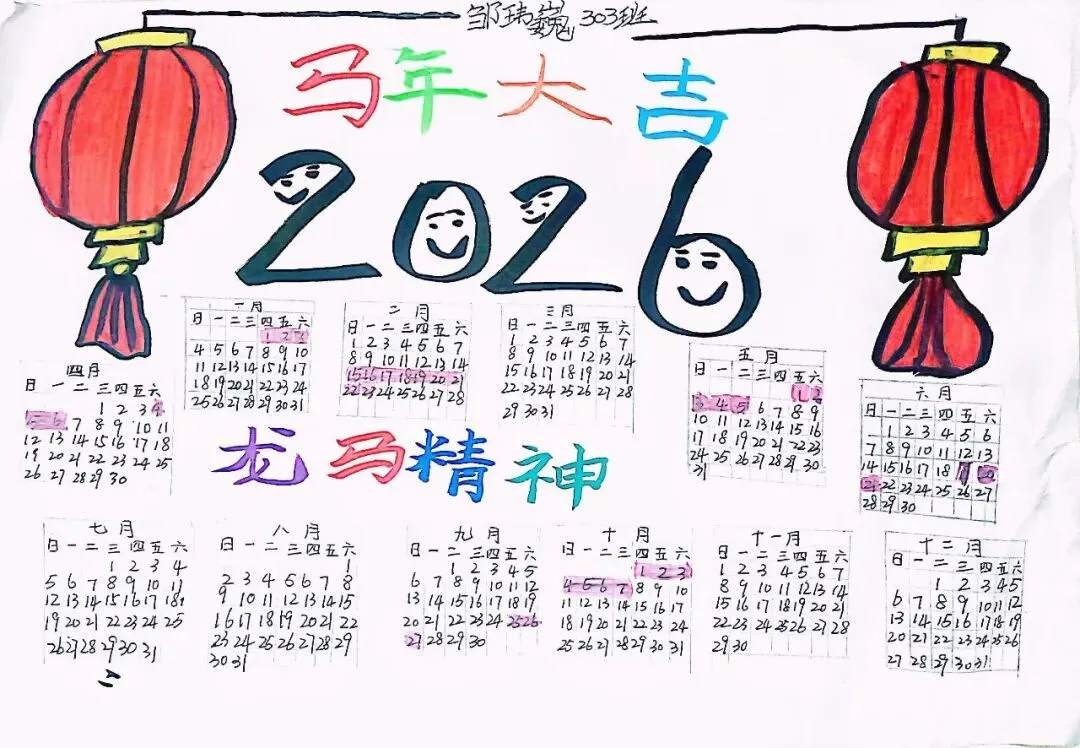 邹玮巍 303班
马年大吉
2026
一月
日 一 二 三 四 五 六
1 2 3
4 5 6 7 8 9 10
11 12 13 14 15 16 17
18 19 20 21 22 23 24
25 26 27 28 29 30 31
二月
日 一 二 三 四 五 六
1 2 3 4 5 6 7
8 9 10 11 12 13 14
15 16 17 18 19 20 21
22 23 24 25 26 27 28
三月
日 一 二 三 四 五 六
1 2 3 4 5 6 7
8 9 10 11 12 13 14
15 16 17 18 19 20 21
22 23 24 25 26 27 28
29 30 31
四月
日 一 二 三 四 五 六
1 2 3 4
5 6 7 8 9 10 11
12 13 14 15 16 17 18
19 20 21 22 23 24 25
26 27 28 29 30
五月
日 一 二 三 四 五 六
1 2
3 4 5 6 7 8 9
10 11 12 13 14 15 16
17 18 19 20 21 22 23
24 25 26 27 28 29 30
31
六月
日 一 二 三 四 五 六
1 2 3 4 5 6
7 8 9 10 11 12 13
14 15 16 17 18 19 20
21 22 23 24 25 26 27
28 29 30
龙马精神
七月
日 一 二 三 四 五 六
1 2 3 4
5 6 7 8 9 10 11
12 13 14 15 16 17 18
19 20 21 22 23 24 25
26 27 28 29 30 31
八月
日 一 二 三 四 五 六
2 3 4 5 6 7 8
9 10 11 12 13 14 15
16 17 18 19 20 21 22
23 24 25 26 27 28 29
30 31
九月
日 一 二 三 四 五 六
1 2 3 4 5
6 7 8 9 10 11 12
13 14 15 16 17 18 19
20 21 22 23 24 25 26
27 28 29 30
十月
日 一 二 三 四 五 六
1 2 3
4 5 6 7 8 9 10
11 12 13 14 15 16 17
18 19 20 21 22 23 24
25 26 27 28 29 30 31
十一月
日 一 二 三 四 五 六
1 2 3 4 5 6 7
8 9 10 11 12 13 14
15 16 17 18 19 20 21
22 23 24 25 26 27 28
29 30
十二月
日 一 二 三 四 五 六
1 2 3 4 5
6 7 8 9 10 11 12
13 14 15 16 17 18 19
20 21 22 23 24 25 26
27 28 29 30 31